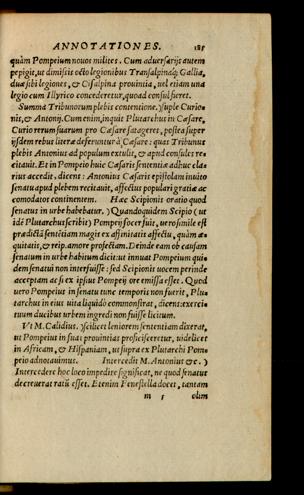 ANNOTATIONES. 185
quàm Pompeium nouos milites. Cum aduersarijs autem
pepigit, ut dimissis octo legionibus Transalpinaq; Gallia,
duæ sibi legiones, & Cisalpina prouintia, uel etiam una
legio cum Illyrico concederetur, quoad consul fieret.
Summa Tribunorum plebis contentione. ) scilicet Curio-
nis, & Antonij. Cum enim, inquit Plutarchus in Cæsare,
Curio rerum suarum pro Cæsare satageret, postea super
ijsdem rebus literæ deferuntur à Cæsare: quas Tribunus
plebis Antonius ad populum extulit, & apud consules re-
citauit. Et in Pompeio huic Cæsaris sententia adhuc cla-
rius accedit. dicens: Antonius Cæsaris epistolam inuito
senatu apud plebem recitauit, affectus populari gratiæ ac
comodatos continentem. Hæc Scipionis oratio quod
senatus in urbe habebatur. ) Quandoquidem Scipio (ut
idē Plutarchus scribit) Pompeij socer fuit, uerosimile est
prædictā sentētiam magis ex affinitatis affectu, quàm æ-
quitatis, & reip. amore profectam. Deinde eam ob causam
senatum in urbe habitum dicit: ut innuat Pompeium qui-
dem senatui non interfuisse: sed Scipionis uocem perinde
acceptam ac si ex ipsius Pompeij ore emissa esset. Quod
uero Pompeius in senatu tunc temporis non fuerit, Plu-
tarchus in eius uita liquidò commonstrat, dicens: exerci-
tuum ducibus urbem ingredi non fuisse licitum.
Vt M. Calidius. ) scilicet leniorem sententiam dixerat,
ut Pompeius in suas prouintias proficisceretur, uidelicet
in Africam, & Hispaniam, ut supra ex Plutarchi Pom-
peio adnotauimus. Intercedit M. Antonius &c. )
Intercedere hoc loco impedire significat, ne quod senatus
decreuerat ratū esset. Etenim Fenestella docet, tantam
m 5 olim